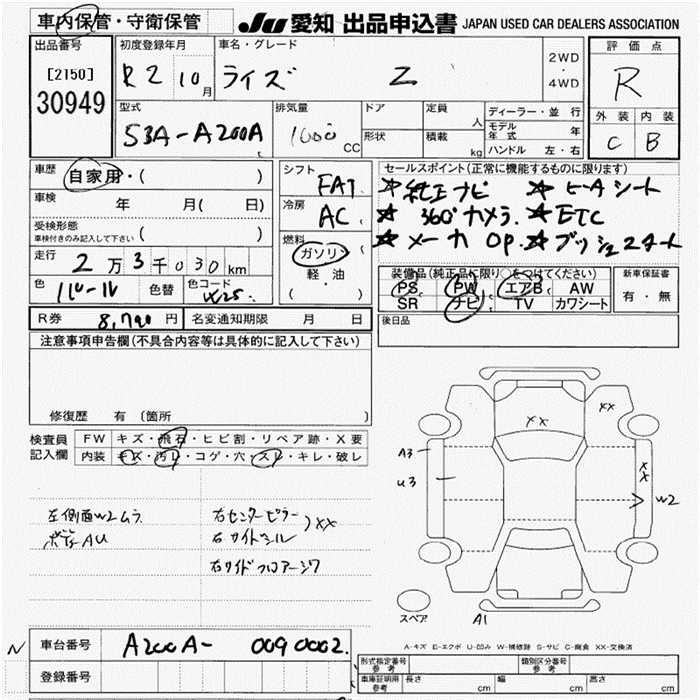 車内保管・守衛保管
JU 愛知 出品申込書 JAPAN USED CAR DEALERS ASSOCIATION
出品番号
[2150]
30949
初度登録年月
R2 10月
車名・グレード
ライズ Z
2WD・4WD
評価点
R
外装 内装
C B
型式
S3A-A200A
排気量
1000 CC
ドア
形状
定員 人
積載 kg
ディーラー・並行
モデル年式 年
ハンドル 左・右
車歴
自家用・( )
車検 年 月( 日)
受検形態
車検付きのみ記入して下さい ( )
走行
2万3千030km
色
パール
色替
色コード
W25
シフト
FAT
冷房
AC
燃料
ガソリン
軽・油
( )
セールスポイント(正常に機能するものに限ります)
☆純正ナビ ☆ヒータシート
☆360°カメラ. ☆ETC
☆メーカOP. ☆プッシュスタート
装備品(純正品に限り○をつけてください)
PS PW エアB AW
SR ナビ TV カワシート
新車保証書
有・無
R券 8,790円
名変通知期限 月 日
後日品
注意事項申告欄(不具合内容等は具体的に記入して下さい)
修復歴 有 〔箇所 〕
検査員記入欄
FW キズ・飛石・ヒビ割・リペア跡・X要
内装 キズ・汚レ・コゲ・穴・スレ・キレ・破レ
左側面W2ムラ
ボディAU
右センターピラー
右サイドシル
)XX
右サイドフロアージワ
XX
XX
A3
U3
XX
W2
スペア
A1
A-キズ E-エクボ U-凹み W-補修跡 S-サビ C-腐食 XX-交換済
N
車台番号 A200A- 0090002.
登録番号
形式指定番号 参考
類別区分番号 参考
車庫証明用 参考 長さ cm 幅 cm 高さ cm